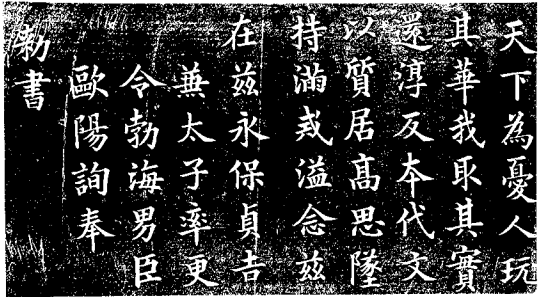 天下為憂人玩
其華我取其實
還淳反夲代文
以質居髙思墜
持滿戒溢念兹
在兹永保貞吉
兼太子率更
令勃海男臣
歐陽詢奉
勅書